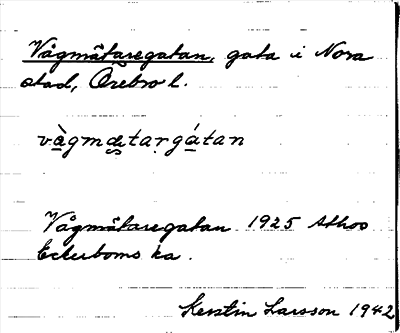 Vågmätaregatan, gata i Nora
stad, Örebro l.
vàgmætargátan
Vågmätaregatan 1925 Athos
Eckerboms ka.
Kerstin Larsson 1942